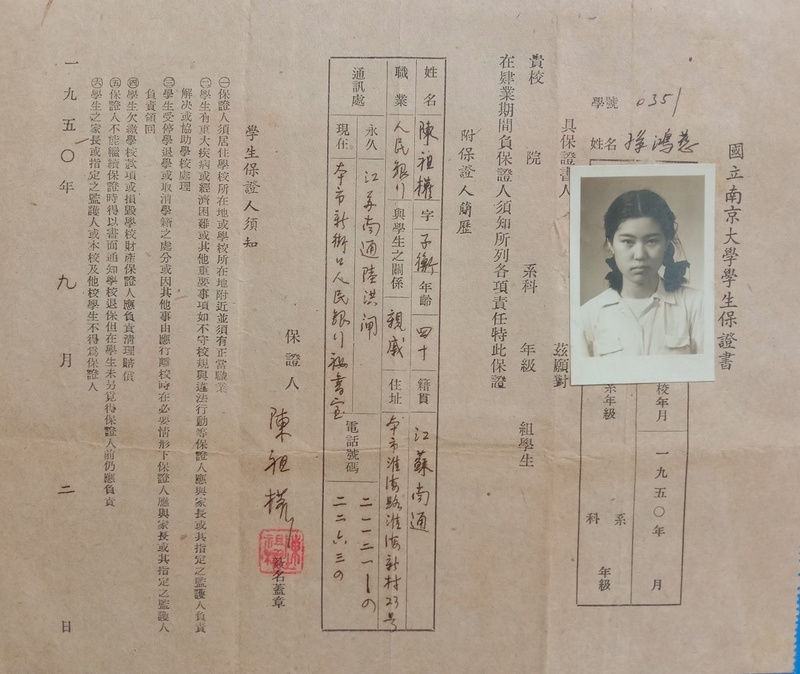 國立南京大學學生保證書
學號 0351
姓名 鴻慈
校年月 一九五〇年 月
系年級 系科 年級
具保證書人 茲願對
貴校 院 系科 年級 組學生
在肄業期間負保證人須知所列各項責任特此保證
附保證人簡歷
姓名 陳祖權 字 子衡 年齡 四十 籍貫 江蘇南通
職業 人民銀行 與學生之關係 親戚 住址 本市淮海路淮海新村23号
通訊處 永久 江苏南通陸洪閘 電話號碼 二一一二一—0
現在 本市新街口人民銀行秘書室 二二六三0
保證人 陳祖權 簽名蓋章
學生保證人須知
㊀保證人須居住學校所在地或學校所在地附近並須有正當職業
㊁學生有重大疾病或經濟困難或其他重要事項如不守校規與違法行動等保證人應與家長或其指定之監護人負責
解決或協助學校處理
㊂學生受停學退學或取消學籍之處分或因其他事由應行離校時在必要情形下保證人應與家長或其指定之監護人
負責領回
㊃學生欠繳學校款項或損毀學校財產保證人應負責清理賠償
㊄保證人不能繼續保證時得以書面通知學校退保但在學生未另覓得保證人前仍應負責
㊅學生之家長或指定之監護人或本校及他校學生不得為保證人
一九五〇年 九 月 二 日